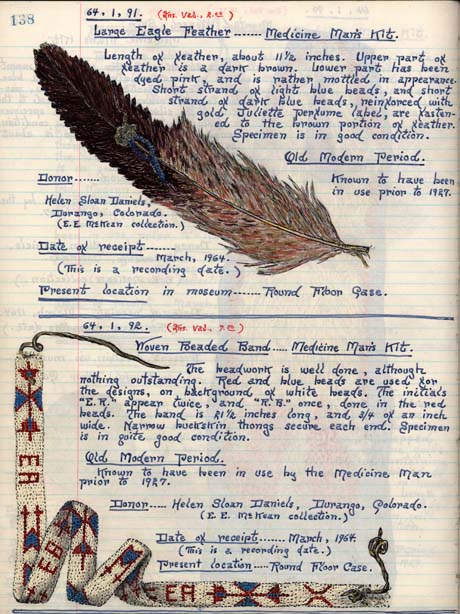 138
64. 1. 91. (Ins. Val., 2.00)
Large Eagle Feather ...... Medicine Man's Kit.
Length of feather, about 11 1/2 inches. Upper part of
feather is a dark brown. Lower part has been
dyed pink, and is rather mottled in appearance.
Short strand of light blue beads, and short
strand of dark blue beads, reinforced with
gold Juliette perfume label, are fasten-
ed to the brown portion of feather.
Specimen is in good condition.
Old Modern Period.
Known to have been
in use prior to 1927.
Donor......
Helen Sloan Daniels,
Durango, Colorado.
(E. E. McKean collection.)
Date of receipt ......
March, 1964.
(This is a recording date.)
Present location in museum ...... Round Floor Case.
64. 1. 92. (Ins. Val., 7.00)
Woven Beaded Band .... Medicine Man's Kit.
The beadwork is well done, although
nothing outstanding. Red and blue beads are used for
the designs, on background of white beads. The initials
"E. A." appear twice, and "A. B." once, done in the red
beads. The band is 21 1/2 inches long, and 3/4 of an inch
wide. Narrow buckskin thongs secure each end. Specimen
is in quite good condition.
Old Modern Period.
Known to have been in use by the Medicine Man
prior to 1927.
Donor .... Helen Sloan Daniels, Durango, Colorado.
(E. E. McKean collection.)
Date of receipt .... March, 1964.
(This is a recording date.)
Present location .... Round Floor Case.
EA
EA
EA